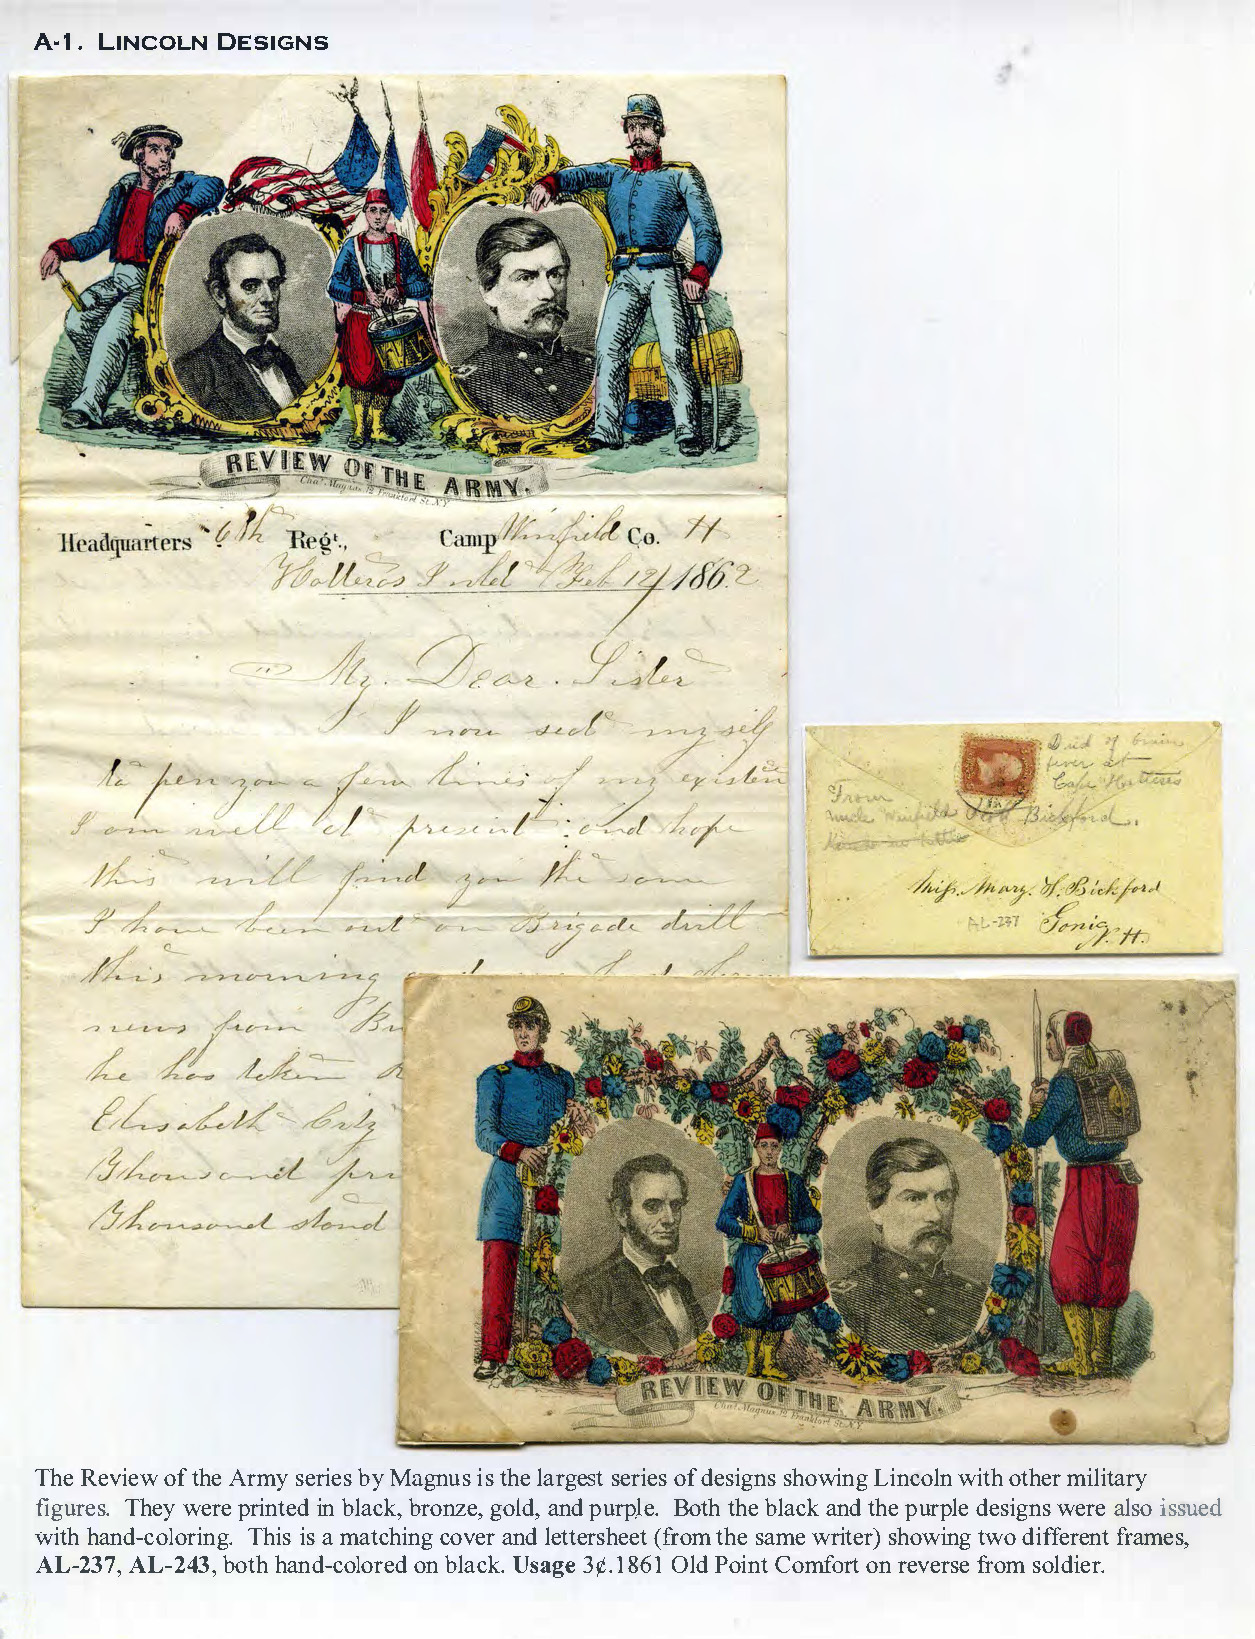 A-1. LINCOLN DESIGNS
REVIEW OF THE ARMY.
Chas. Magnus 12 Frankfort St. N.Y.
Headquarters 6th Regt., Camp Winfield Co. H
Hatteras Inlet Feb 12/ 1862
My. Dear. Sister
I now seat my self
to pen you a few lines of my existence
I am well at present and hope
this will find you the same
I have been out on Brigade drill
this morning
news from Bu
he has taken R
Elisabeth City
Thousand pri
Thousand stand
Died of brain
fever at
Cape Hatteras
From
uncle Winfield Scott Bickford.
Miss. Mary. H. Bickford
AL-237 Gonic
N. H.
REVIEW OF THE ARMY.
Chas. Magnus 12 Frankfort St. N.Y.
The Review of the Army series by Magnus is the largest series of designs showing Lincoln with other military
figures. They were printed in black, bronze, gold, and purple. Both the black and the purple designs were also issued
with hand-coloring. This is a matching cover and lettersheet (from the same writer) showing two different frames,
AL-237, AL-243, both hand-colored on black. Usage 3¢.1861 Old Point Comfort on reverse from soldier.